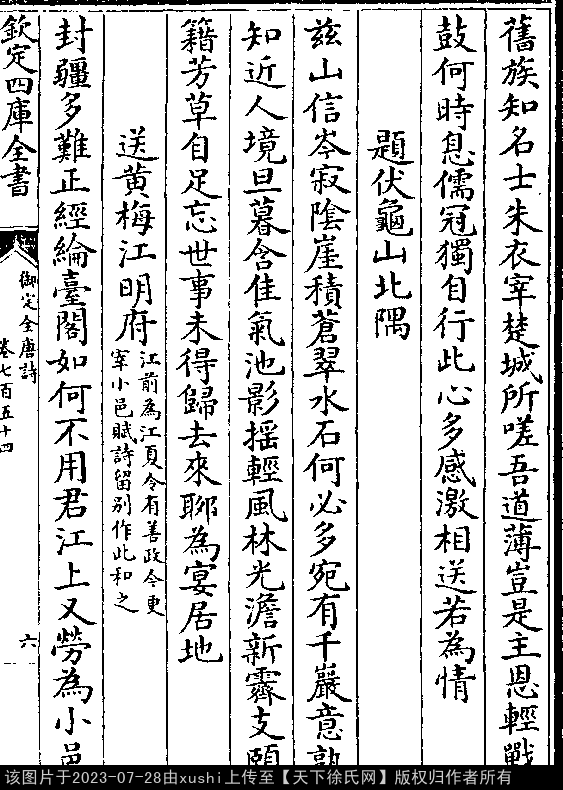 舊族知名士朱衣宰楚城所嗟吾道薄豈是主恩輕戰
鼓何時息儒冠獨自行此心多感激相送若為情
題伏龜山北隅
茲山信岑寂陰崖積蒼翠水石何必多宛有千巖意孰
知近人境旦暮含佳氣池影摇輕風林光澹新霽支頤
籍芳草自足忘世事未得歸去來聊為宴居地
送黄梅江明府
江前為江夏令有善政今更
宰小邑賦詩留别作此和之
封疆多難正經綸臺閣如何不用君江上又勞為小邑
欽定四庫全書
御定全唐詩
卷七百五十四
六
该图片于2023-07-28由xushi上传至【天下徐氏网】版权归作者所有